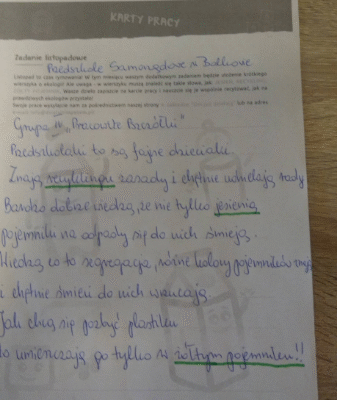 KARTY PRACY
Zadanie listopadowe
Przedszkole Samorządowe w Bolkowie
Grupa "Pracowite Pszczółki"
Przedszkolaki to są fajne dzieciaki
Znają recyklingu zasady i chętnie udzielają rady
Bardzo dobrze wiedzą, że nie tylko jesienią
pojemniki na odpady się do nich śmieją.
Wiedzą co to segregacja, różne kolory pojemników znają
i chętnie śmieci do nich wrzucają
Jak chcą się pozbyć plastiku
to umieszczają go tylko w żółtym pojemniku!!